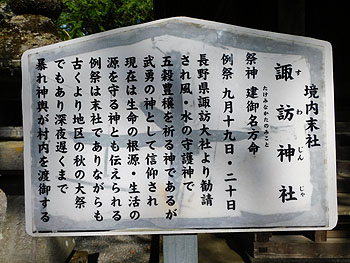 境内末社
諏訪神社
すわじんじゃ
祭神 建御名方命
たけみなかたのみこと
例祭 九月十九日・二十日
長野県諏訪大社より勧請
され風・水の守護神で
五穀豊穣を祈る神であるが
武勇の神として信仰され
現在は生命の根源・生活の
源を守る神とも伝えられる
例祭は末社でありながらも
古くより地区の秋の大祭
でもあり深夜遅くまで
暴れ神輿が村内を渡御する